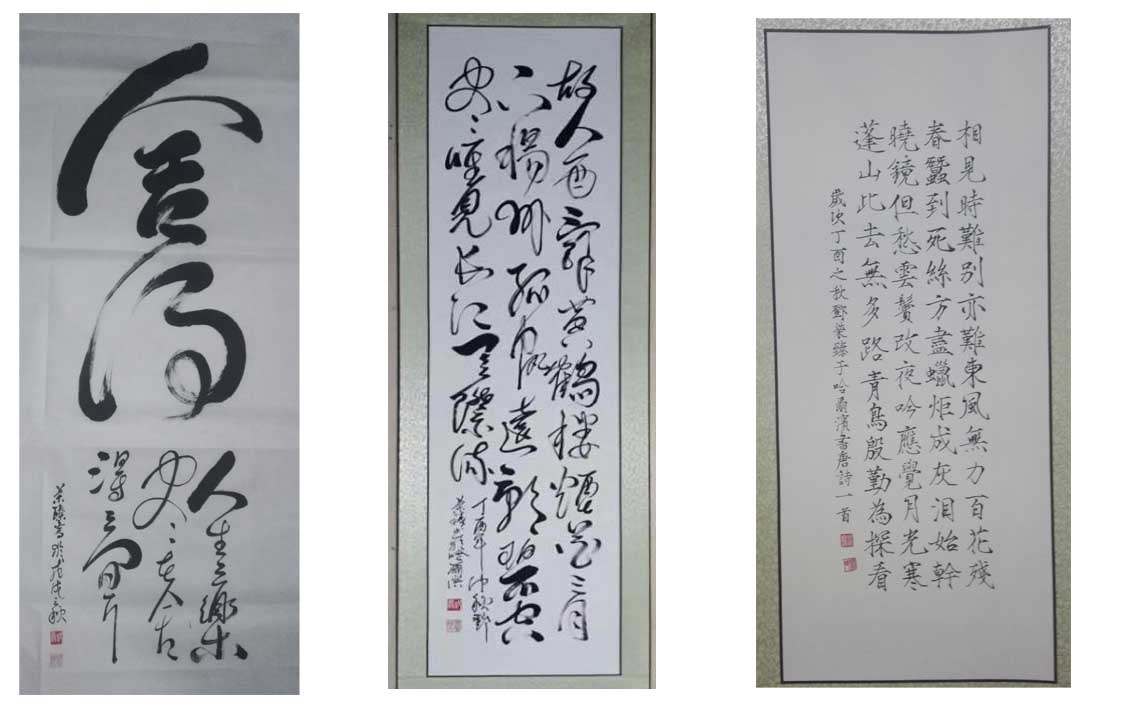 舍得
人生之樂
尽在舍
得之间耳
荣臻書於戊戌之秋
故人西辞黄鶴楼煙花三月
下揚州孤帆遠影碧空
尽唯見长江天際流
丁酉年仲秋
相見時難別亦難東風無力百花殘
春蠶到死絲方盡蠟炬成灰泪始幹
曉鏡但愁雲鬢改夜吟應覺月光寒
蓬山此去無多路青鳥殷勤為探看
歲次丁酉之秋鄧榮臻于哈爾濱書唐詩一首